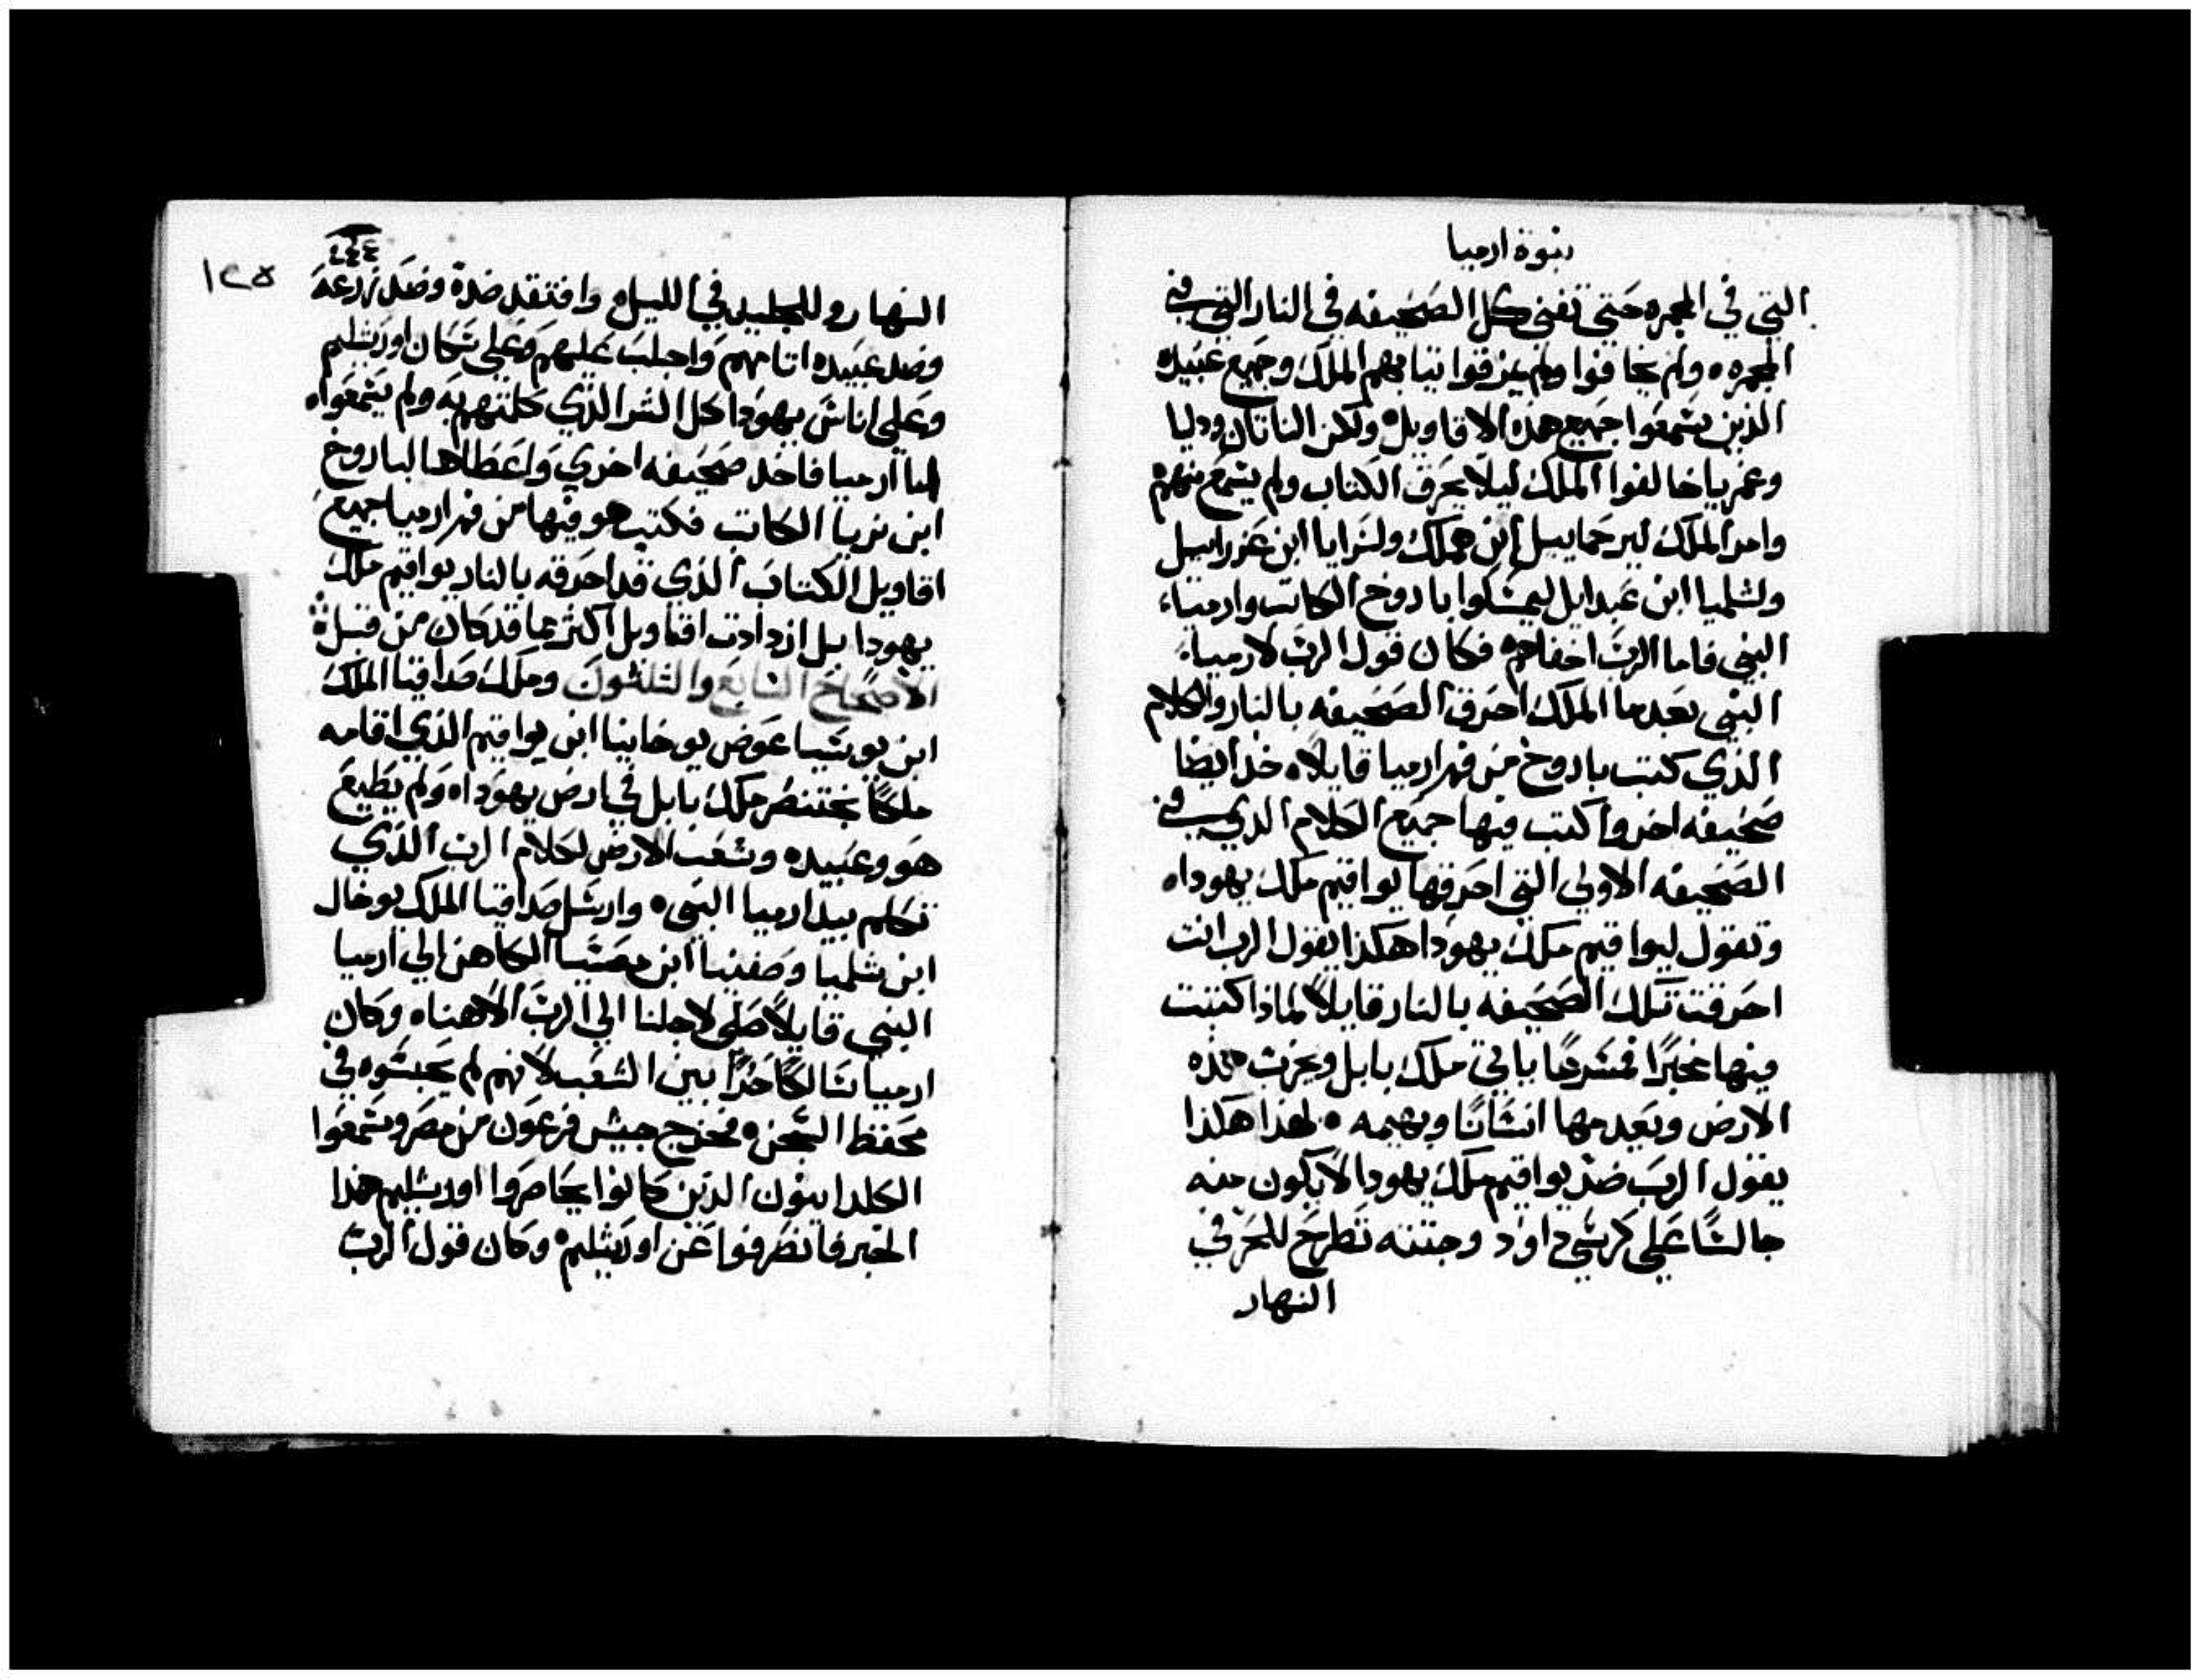 نبوة ارميا
التي في المجمره حتي تفني كل الصحيفه في النار التي في
المجمره ولم يخافوا ولم يمزقوا تيابهم الملك وجميع عبيده
الذين سمعوا جميع هذه الاقاويل ولكن الناتان ودليا
وغمريا خالفوا الملك ليلا يحرق الكتاب ولم يسمع منهم
وامر الملك ليرحماييل ابن هملك ولسرايا ابن عزراييل
ولشلميا ابن عبدايل ليمسكوا باروخ الكاتب وارميا
النبي فاما الرب اخفاهم فكان قول الرب لارميا
النبي بعدما الملك احرق الصحيفه بالنار والكلام
الذي كتب باروخ من فم ارميا قايلا خد ايضا
صحيفه اخر واكتب فيها جميع الكلام الذي في
الصحيفه الاولي التي احرقها يواقيم ملك يهودا
وتقول ليواقيم ملك يهودا هكذا يقول الرب انت
احرقت تلك الصحيفه بالنار قايلا لماذا كتبت
فيها مخبرا مسرعا ياتي ملك بابل ويخرب هذه
الارض ويعدم منها انسانا وبهيمه لهذا هكذا
يقول الرب ضد يواقيم ملك يهودا لا يكون منه
جالسا علي كرسي داود وجتته تطرح للحر في
النهار
٤٤٤
١٢٥
النهار وللجليد في الليل وافتقد ضده وضد زرعه
وضد عبيده اتامهم واجلب عليهم وعلي سكان اورشليم
وعلي اناس يهودا كل الشر الذي كلمتهم به ولم يسمعوا
اما ارميا فاخد صحيفه اخري واعطاها لباروخ
ابن نريا الكاتب فكتب هو فيها من فم ارميا جميع
اقاويل الكتاب الذي قد احرقه بالنار يواقيم ملك
يهودا بل ازدادت اقاويل اكثر مما قد كان من قبل
الاصحاح السابع والتلتون وملك صداقيا الملك
ابن يوشيا عوض يوخانيا ابن يواقيم الذي اقامه
ملكا بختنصر ملك بابل في ارض يهودا ولم يطيع
هو وعبيده وشعب الارض لكلام الرب الذي
تكلم بيد ارميا النبي وارسل صداقيا الملك يوخال
ابن شلميا وصفنيا ابن معسيا الكاهن الي ارميا
النبي قايلا صلي لاجلنا الي الرب الاهنا وكان
ارميا سالكا حرا بين الشعب لانهم لم يحبسوه في
محفظ السجن فخرج جيش فرعون من مصر وسمعوا
الكلدانيون الذين كانوا يحاصروا اورشليم هذا
الخبر فانصرفوا عن اورشليم وكان قول الرب